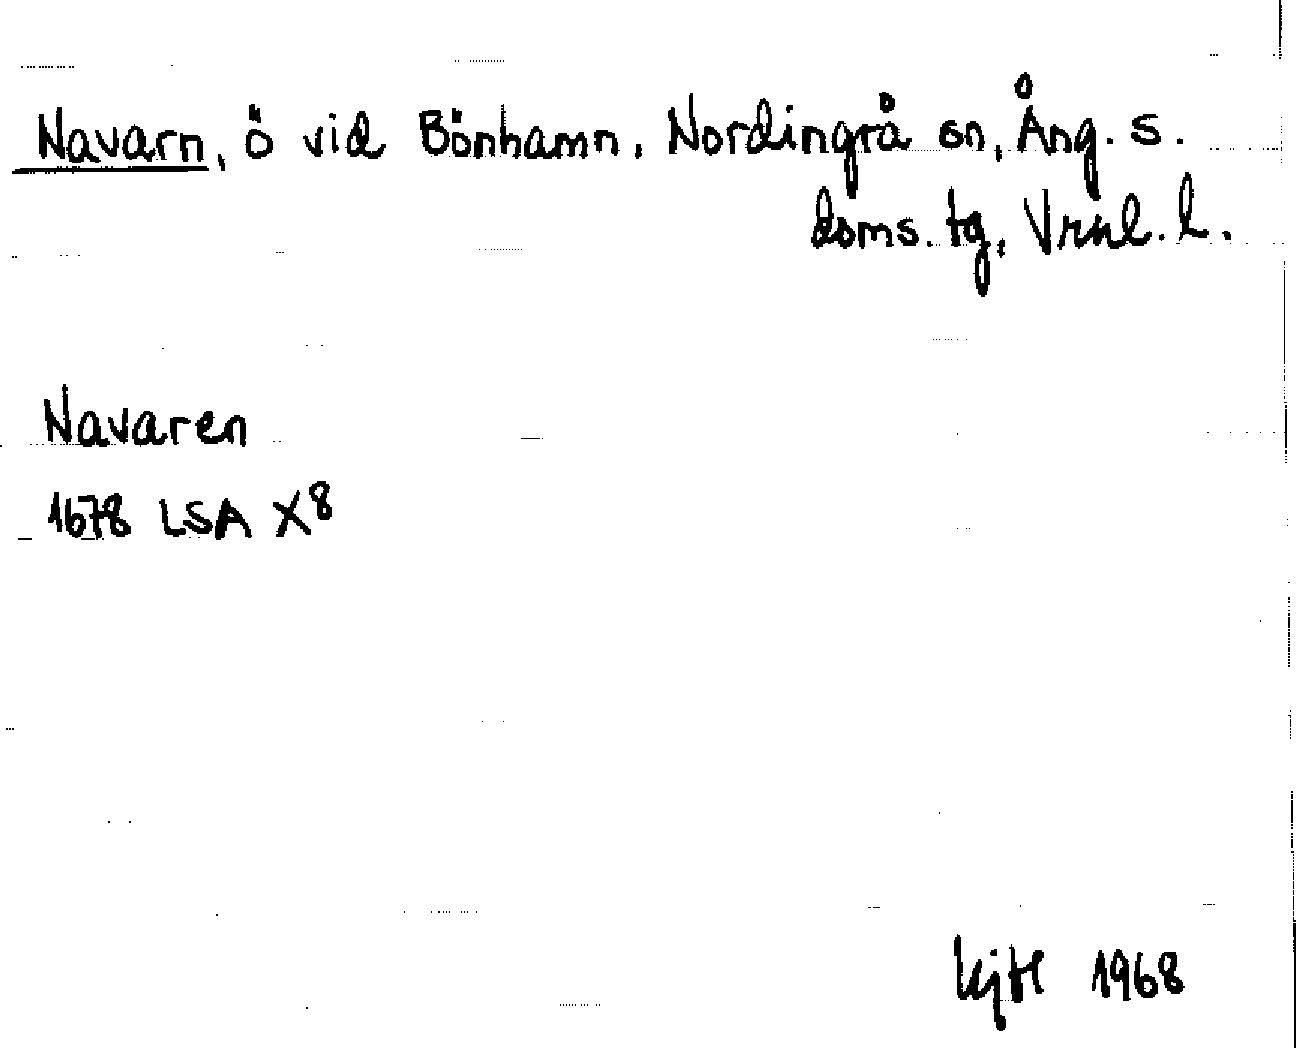 Navarn, ö vid Bönhamn, Nordingrå sn, Ång. s.
doms. tg, Vrnl. l.
Navaren
1678 LSA X8
1968